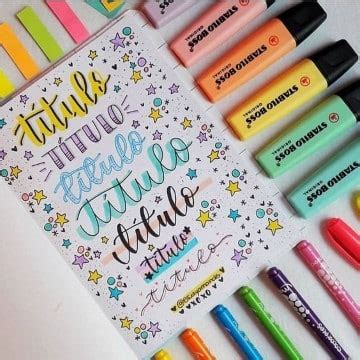 título
TÍTULO
título
título
título
título
título
xoxo
STABILO BOSS
ORIGINAL
STABILO BOSS
ORIGINAL
STABILO BOSS
ORIGINAL
STABILO BOSS
ORIGINAL
STABILO BOSS
ORIGINAL